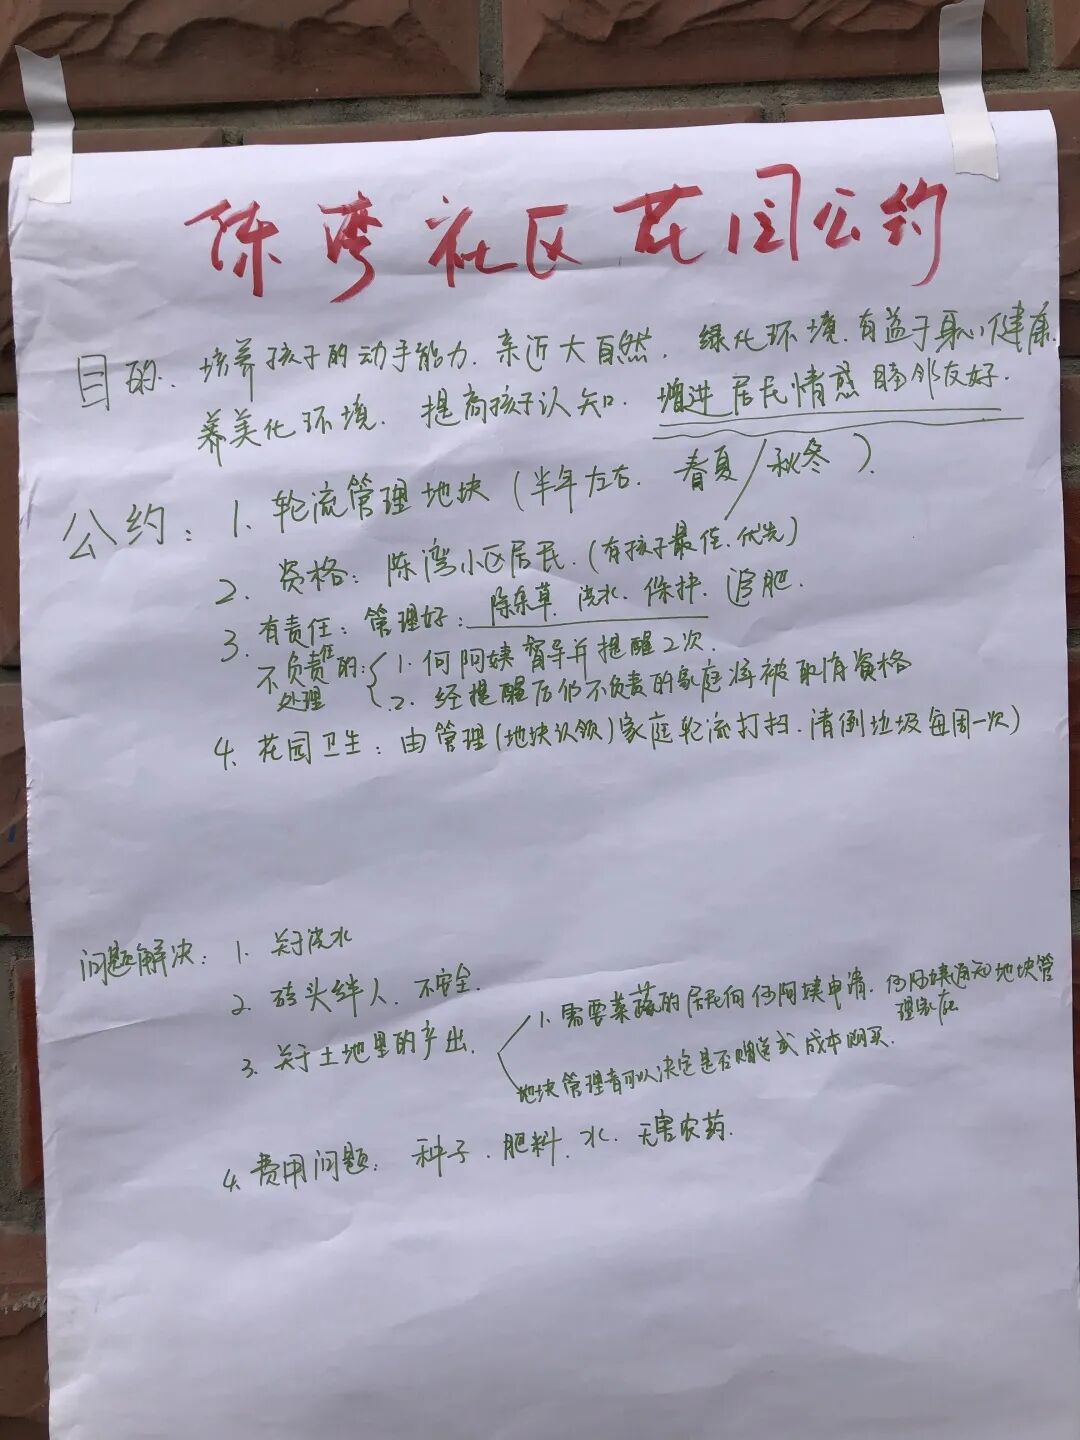 陈湾社区花园公约
目的、培养孩子的动手能力、亲近大自然、绿化环境、有益于身心健康、
养美化环境、提高孩子认知、增进居民情感 睦邻友好.
公约：1、轮流管理地块（半年左右、春夏/秋冬）、
2、资格：陈湾小区居民.（有孩子最佳、优先）
3、有责任：管理好：除杂草、浇水、保护、追肥.
不负责任的：处理
1. 何阿姨督导并提醒2次.
2、经提醒后仍不负责的家庭将被取消资格
4、花园卫生：由管理(地块认领)家庭轮流打扫、清倒垃圾每周一次)
问题解决：1、关于浇水
2、砖头绊人、不安全.
3、关于土地里的产出.
1、需要菜蔬的居民向何阿姨申请、何阿姨通知地块管理家庭
地块管理者可以决定是否赠送或成本购买.
4、费用问题：种子、肥料、水、无害农药.